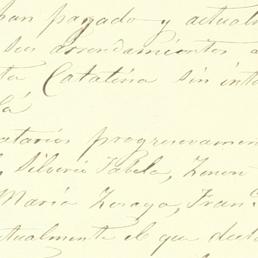 han pagado y actualm
sus arrendamientos a
ta Catalina sin inte
lá
atarios progresivamen
Silverio Varela, Zenon
María Zoraya, Fran.
actualmente el que